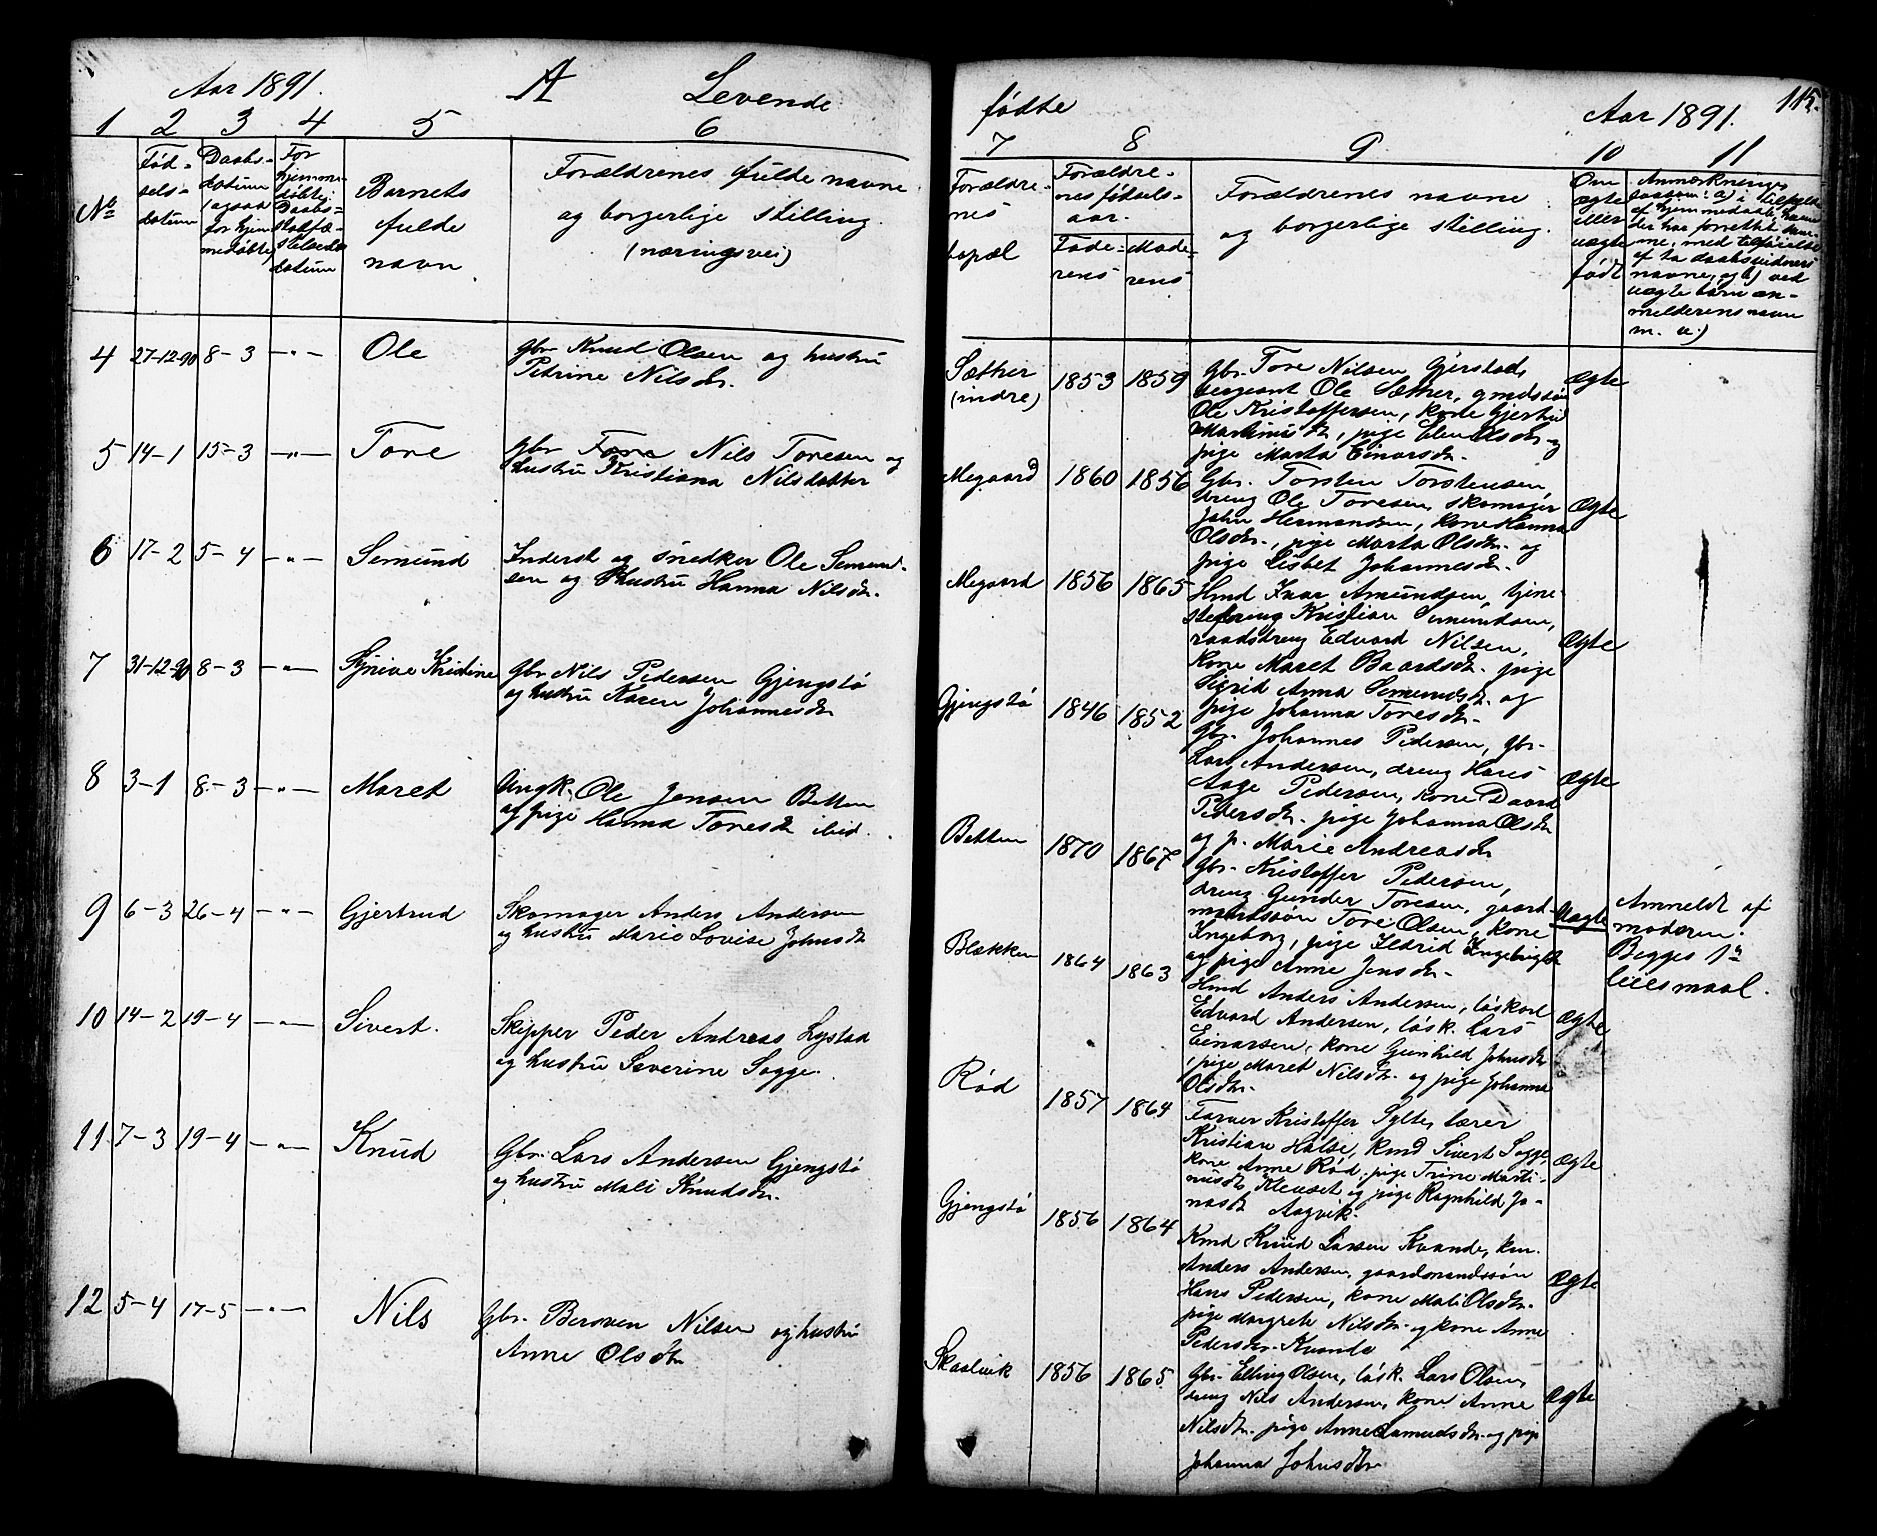 Aar 1891. A Levende
1 2 3 4 5 6
No
Fød-
sels-
datum
Daabs-
datum
(ogsaa
for hjem-
medøbte)
For
hjemme-
døbte
Daabs-
datum
Barnets
fulde
navn
Forældrenes fulde navne
og borgerlige stilling.
(næringsvei)
4 27-12-90 8-3 -"- Ole gbr Knud Olsen og hustru
Petrine Nilsdr.
5 14-1 15-3 -"- Tore gbr Tore Nils Toresen og
hustru Kristiana Nilsdatter
6 17-2 5-4 -"- Semund Inderst og snedker Ole Semund-
sen og hustru Hanna Nilsdr.
7 31-12-90 8-3 -"- Synive Kristine gbr Nils Pedersen Gjengstø
og hustru Karen Johannesdr
8 3-1 8-3 -"- Maret Ungk. Ole Jensen Betten
og pige Hanna Toresdr ibid.
9 6-3 26-4 -"- Gjertrud Skomager Anders Andersen
og hustru Marie Lovise Johnsdr
10 14-2 19-4 -"- Sivert. Skipper Peder Andreas Lystad
og hustru Severine Sogge.
11 7-3 19-4 -"- Knud Gbr. Lars Andersen Gjengstø
og hustru Mali Knudsdr.
12 5-4 17-5 -"- Nils gbr. Beroven Nilsen og hustru
Anne Olsdtr
fødte Aar 1891. 115.
7 8 9 10 11
Forældre-
nes
bopæl
Forældre-
nes fødsels-
aar.
Fade-
rens
Mode-
rens
Forældrenes navne
og borgerlige stilling.
Om
ægte
eller
uægte
født
Anmærkninger
saasom: a) i tilfælde
af hjemmedaab, hvem
der har forrettet sam-
me, med tilføielse
af to daabsvidners
navne, og b) ved
uægte børn an-
melderens navn
m. v.)
Sæther
(indre) 1853 1859 gbr. Tore Nilsen Gjerstad,
sergeant Ole Sæther, gmdssøn
Ole Kristoffersen, kone Gjertrud
Martinusdr, pige Elen Olsdr og
pige Marta Einarsdr. Ægte
Megaard 1860 1856 Gbr. Torsten Torstensen,
dreng Ole Toresen, skomager
John Hermansen, kone Hanna
Olsdr., pige Marta Olsdr. og
pige Lisbet Johannesdr. Ægte
Megaard 1856 1865 Hmd Ivar Amundsen, tjene-
stedreng Kristian Semundsen,
raadsdreng Edvard Nilsen,
kone Maret Baardsdr. pige
Sigrid Anna Semundsdr. og
pige Johanna Toresdr. Ægte
Gjengstø 1846 1852 Gbr. Johannes Pedersen, gbr.
Lars Andersen, dreng Hans
Aage Pedersen, kone
Pedersdr. pige Johanna Olsdr
og p. Marie Andreasdr Ægte
Betten 1870 1867 Gbr. Kristoffer Pedersen,
dreng Gunder Toresen, gaard-
mandssøn Tore Olsen, kone
Ingeborg, pige Ildrid Ingebrigtsdr
og pige Anne Jensdr. Uægte Anmeldt af
moderen.
Begges 1ste
leiesmaal.
Blekken 1864 1863 Hmd Anders Andersen, løskarl
Edvard Andersen, løsk. Lars
Einarsen, kone Gunhild Johnsdr
pige Maret Nilsdr. og pige Johanna
Olsdr. Ægte
Rød 1857 1864 Farver Kristoffer Sylte, lærer
Kristian Halse, kmd Sivert Sogge,
kone Anne Rød, pige Trine Marti-
nusdr og pige Ragnhild Jo-
nasdr Aagvik. Ægte
Gjengstø 1856 1864 Kmd Knud Larsen Kvande, km.
Anders Andersen, gaardmandssøn
Hans Pedersen, kone Mali Olsdr.
pige Margrete Nilsdr. og kone Anne
Pedersdr. Kvande Ægte
Skaalvik 1856 1865 Gbr. Elling Olsen, løsk. Lars Olsen,
dreng Nils Andersen, kone Anne
Nilsdr. pige Anne og pige
Johanna Johnsdtr Ægte